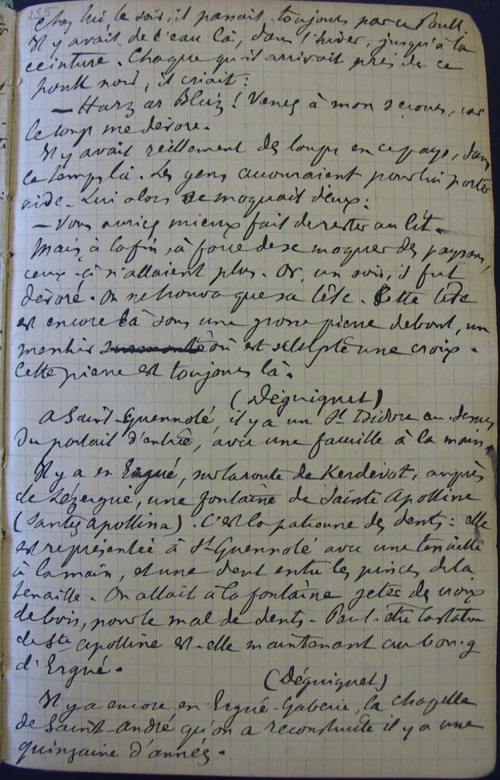 155
chez lui le soir, il passait toujours par ce Poull.
Il y avait de l'eau là, dans l'hiver, jusqu'à la
ceinture. Chaque qu'il arrivait près de ce
poull noir, il criait :
— Harz ar Bleiz ! Venez à mon secours, car
le loup me dévore.
Il y avait réellement des loups en ce pays, dans
ce temps là. Les gens accouraient pour lui porter
aide. Lui alors se moquait d'eux :
— Vous auriez mieux fait de rester au lit.
Mais, à la fin, à force de se moquer des paysans,
ceux-çi n'allaient plus. Or, un soir, il fut
dévoré. On ne trouva que sa tête. Cette tête
est encore là sous une grosse pierre debout, un
menhir surmonté où est sculpté une croix.
Cette pierre est toujours là.
(Déguignet)
A Saint-Guennolé, il y a un St Isidore au-dessus
du portail d'entrée, avec une faucille à la main.
Il y a en Ergué, sur la route de Kerdévot, auprès
de Lézergué, une fontaine de Sainte Apolline
(Santez Apollina). C'est la patronne des dents : elle
est représentée à St Guennolé avec une tenaille
à la main, et une dent entre les pinces de la
tenaille. On allait à la fontaine jeter des croix
de bois, pour le mal de dents. Peut-être la statue
de Ste Apolline est-elle maintenant au bourg
d'Ergué.
(Déguignet)
Il y a encore en Ergué-Gabéric, la chapelle
de Saint-André qu'on a reconstruite il y a une
quinzaine d'années.